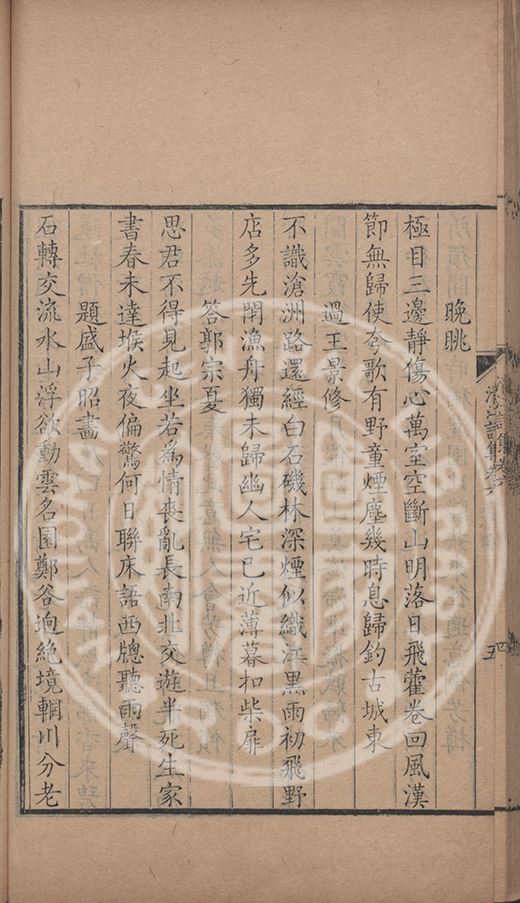 晚眺
極目三邊靜傷心萬室空斷山明落日飛藿卷回風漢
節無歸使夸歌有野童煙塵幾時息歸釣古城東
過王景修
不識滄洲路還經白石磯林深煙似織江黑雨初飛野
店多先閉漁舟獨未歸幽人宅已近薄暮扣柴扉
答郭宗夏
思君不得見起坐若爲情喪亂長南北交遊半死生家
書春未達堠火夜偏驚何日聯床語西牕聽雨聲
題盛子昭畫
石轉交流水山浮欲動雲名園鄭谷迥絶境輞川分老
五